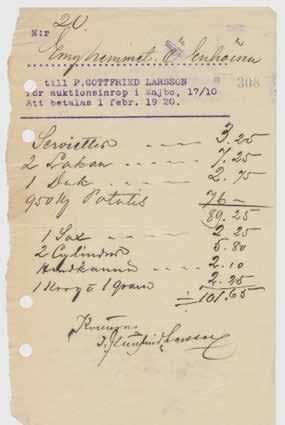 N:r 20.
Ö Enhörna
till P.GOTTFRIED LARSSON
för auktionsinrop i Majbo, 17/10
Att betalas 1 febr. 19 20.
308
Servietter - - - - 3.25
2 Lakan - - - - 7.25
1 Duk - - - - 2.75
950 kg Potatis 76 -
89.25
1 Sax - - - - 2.25
2 Cylindrar - - - 5.80
Handkanna - - - - 2.10
1 Korg 1 2.25
101.65
Kvitteras
Larsson